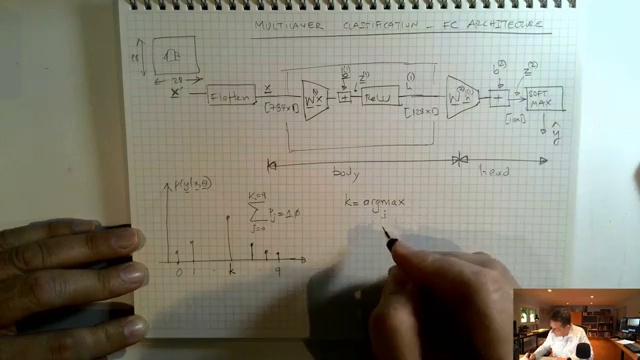 MULTILAYER CLASSIFICATION - FC ARCHITECTURE
28
28
x
Flatten
x
[784x1]
W(1) x
b(1)
+
z(1)
ReLU
h(1)
[128x1]
W(2) h(1)
b(2)
+
z(2)
[10x1]
SOFT
MAX
ŷ
body
head
p(y|x,θ)
K=9
∑ Pj = 1.0
j=0
k = argmax
j
0 1 k 9